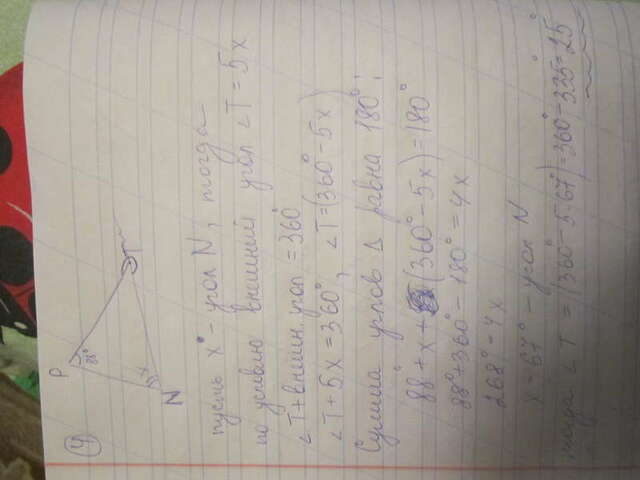 4
P
88°
x
T
N
пусть x° - угол N, тогда
по условию внешний угол ∠T = 5x
∠T + внешн. угол = 360°
∠T + 5x = 360°, ∠T = (360° - 5x)
Сумма углов Δ равна 180°;
88° + x + (360° - 5x) = 180°
88° + 360° - 180° = 4x
268° = 4x
x = 67° - угол N
тогда ∠T = (360° - 5·67°) = 360° - 335° = 25°